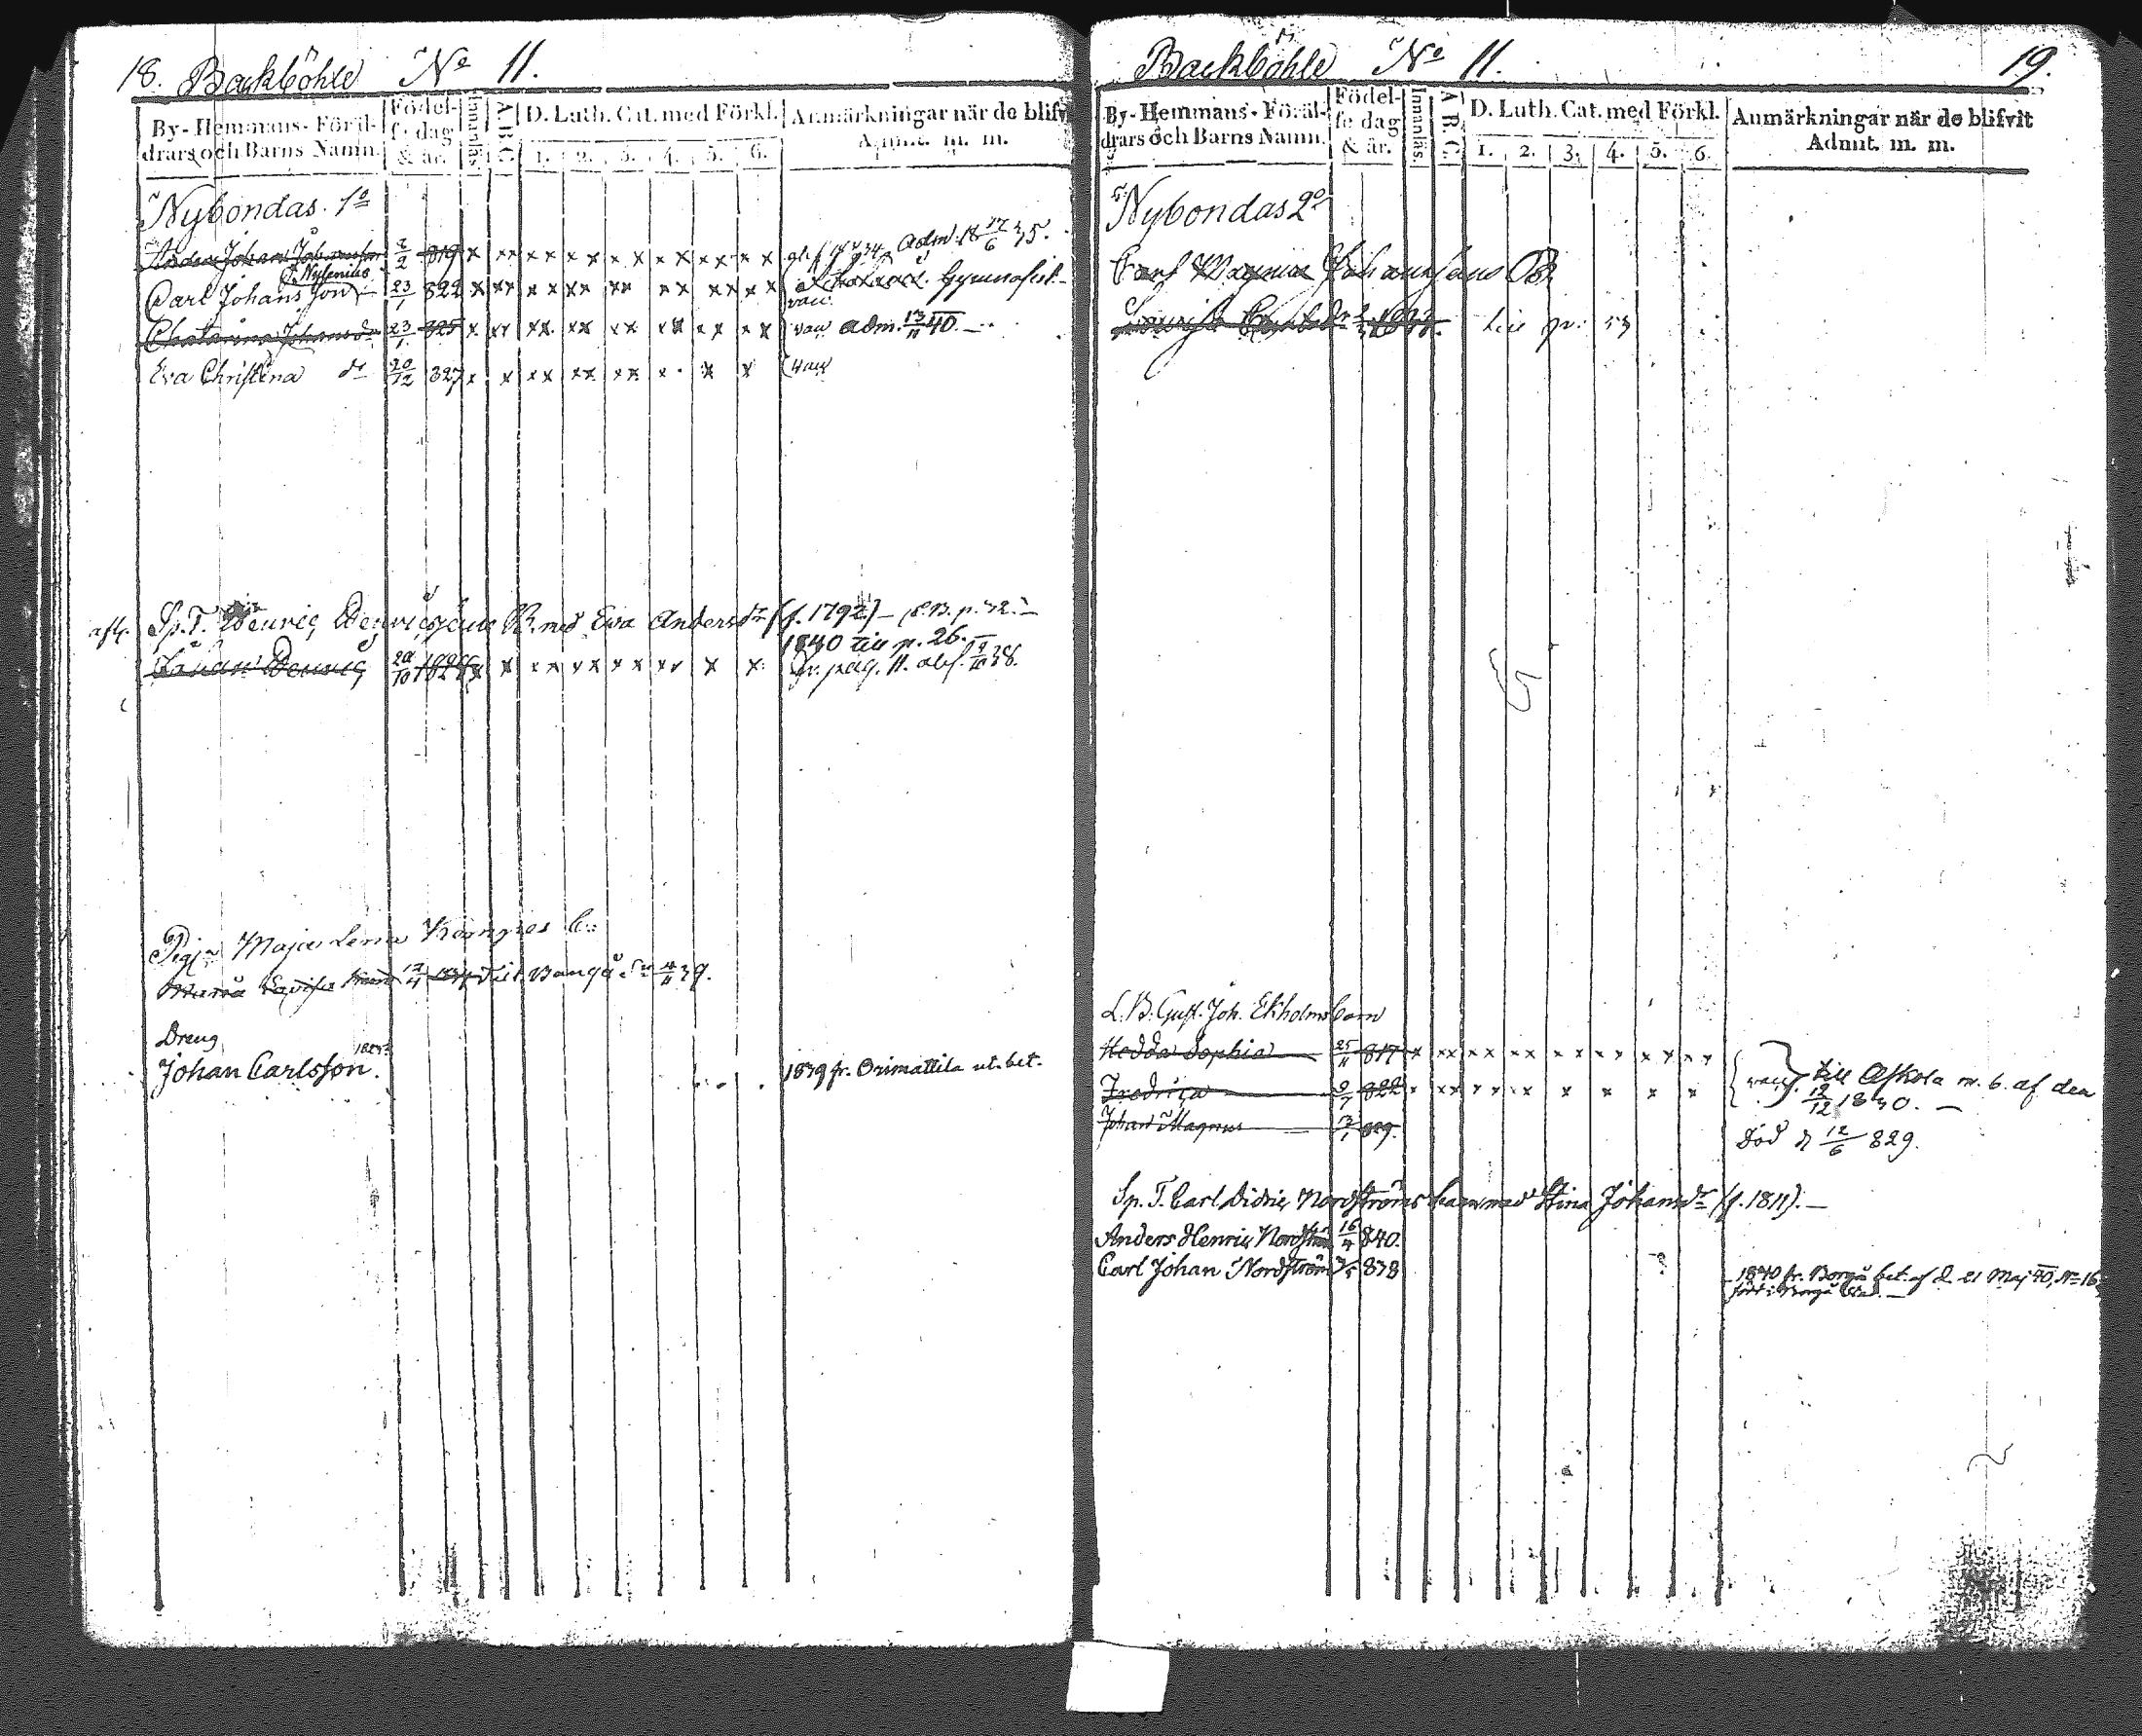 18. Backböhle No 11.
By-Hemmans-Föräl-
drars och Barns Namn.
Födel-
se dag
& år.
Innanläs.
A B C.
D. Luth. Cat. med Förkl.
1. 2. 3. 4. 5. 6.
Anmärkningar när de blifv
Admt. m. m.
Nybondas. 1o
Anders Johan Johansson 2/2 819 x xx xx xx xx xx xx xx Adm. 18 17/6 35.
Nylenius
Carl Johans Son 23/1 822 x xx xx xx xx xx xx xx Gymnasist
vau
Chatarina Johansdr 23/1 825 x xx xx xx xx xx xx xx vau adm. 13/11 40.
Eva Christina dr 20/12 827 x x xx xx xx x x x vau
Sp. T. Henric B. med Eva Andersdr (f. 1792) p. 32.
1840 till p. 26.
Johan Henric 20/10 x x xx xx xx xx x x fr. pag. 11. 38.
Pig. Maja Lena
Maria Lovisa till Borgå 39.
Dreng
Johan Carlsson. 1839 fr. Orimattila ut. bet.
Backböhle No 11. 19.
By-Hemmans-Föräl-
drars och Barns Namn.
Födel-
se dag
& år.
Innanläs.
A B C.
D. Luth. Cat. med Förkl.
1. 2. 3. 4. 5. 6.
Anmärkningar när de blifvit
Admt. m. m.
Nybondas 2o
Carl Magnus Johanssons B
Lovisa Carlsdr
L. B. Gust. Joh. Ekholms barn
Hedda Sophia 25/11 817 x xx xx xx xx xx xx xx
Fredrica 9/7 822 x xx xx xx x x x x till Askola m. b. af den
12/12 1840.
Johan Magnus 13/1 829. död d 12/6 829.
Sp. T. Carl Didric Nordströms barn med Stina Johansdr (f. 1811).
Anders Henric Nordström 16/4 840.
Carl Johan Nordström 7/5 838 1840 fr. Borgå bet. af d. 21 Maj 40, No 16
född i Borgå Stad.